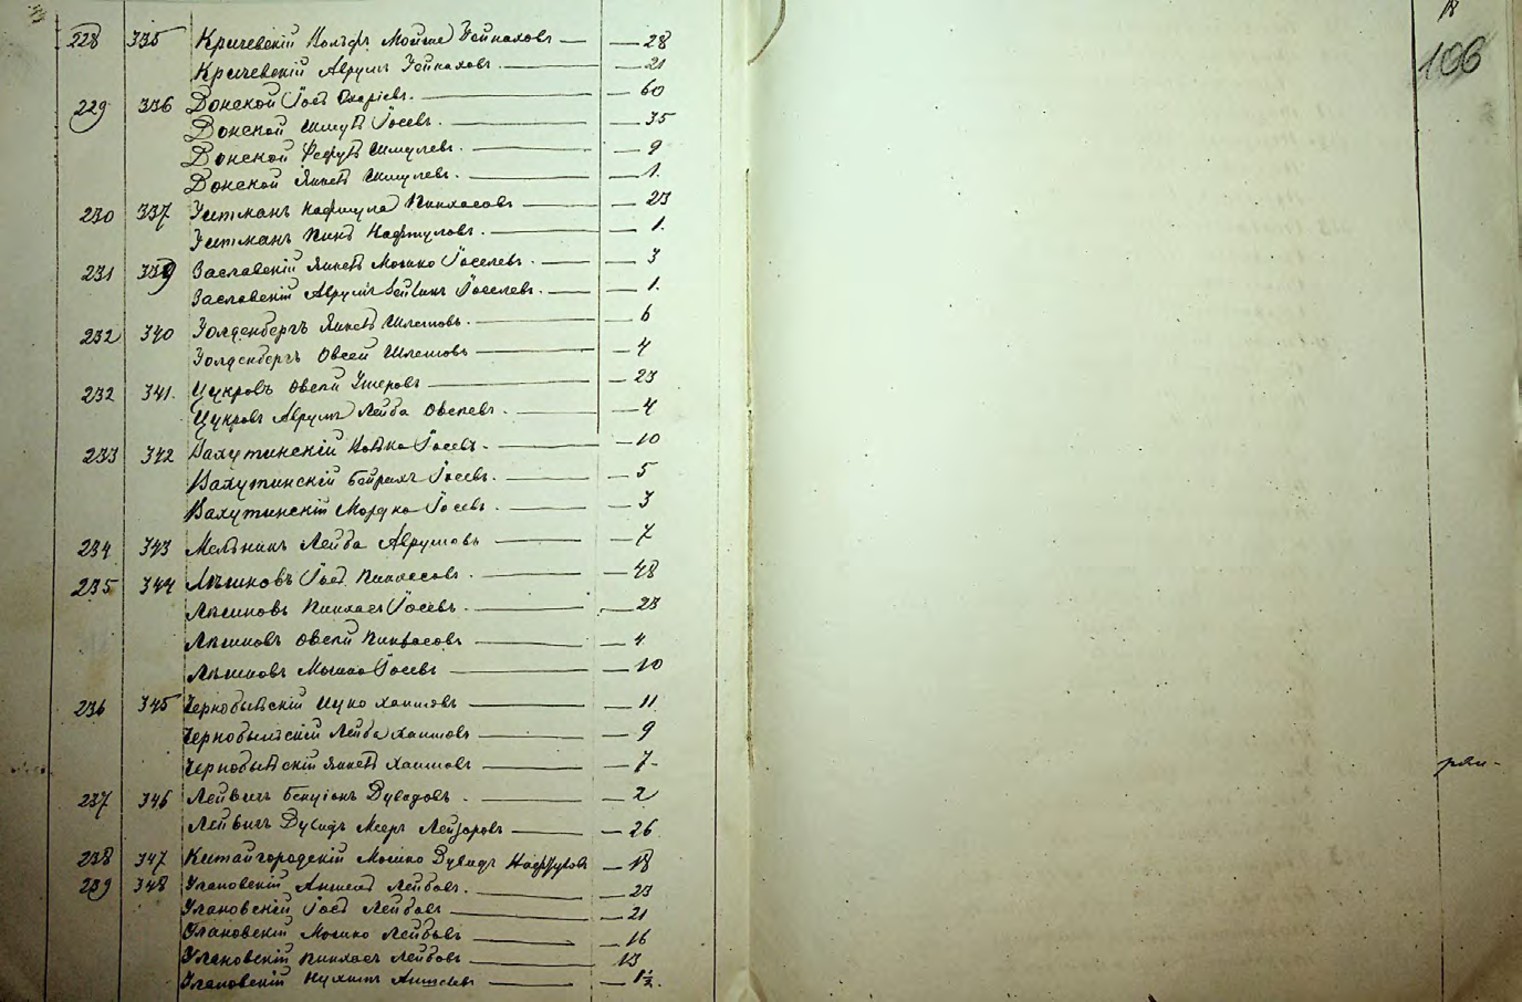 228 335 Кричевскiй Вольфъ Мойше Зейнаховъ — 28
Кричевскiй Аврумъ Зейнаховъ — 21
229 336 Донской Iосъ — 60
Донской Шмуль Iосевъ — 35
Донской Шмулевъ — 9
Донской Янкель Шмулевъ — 1.
230 337 Гитманъ Нафтула Пинхасовъ — 23
Гитманъ Пинхъ Нафтуловъ — 1.
231 339 Заславскiй Янкель Мошко Iоселевъ — 3
Заславскiй Аврумъ Лейвикъ Iоселевъ — 1.
232 340 Голденбергъ Янкель Шлемовъ — 6
Голденбергъ Овсей Шлемовъ — 4
232 341. Цукровъ Овсей Ушеровъ — 23
Цукровъ Аврумъ Лейба Овсеевъ — 4
233 342 Вахутинскiй Iосевъ — 10
Вахутинскiй Бейрахъ Iосевъ — 5
Вахутинскiй Мордко Iосевъ — 3
234 343 Мельникъ Лейба Аврумовъ — 7
235 344 Ляшковъ Iось Пинхасовъ — 48
Ляшковъ Пинхасъ Iосевъ — 23
Ляшковъ Овсей Пинхасовъ — 4
Ляшковъ Мошко Iосевъ — 10
236 345 Чернобыльскiй Ицко Хаимовъ — 11
Чернобыльскiй Лейба Хаимовъ — 9
Чернобыльскiй Янкель Хаимовъ — 7
237 346 Лейвигъ Бенцiонъ Дувидовъ — 2
Лейвигъ Дувидъ Мееръ Лейзоровъ — 26
238 347 Китайгородскiй Мошко Дувидъ — 18
239 348 Улановскiй Аншель Лейбовъ — 23
Улановскiй Iось Лейбовъ — 21
Улановскiй Мошко Лейбовъ — 16
Улановскiй Пинхасъ Лейбовъ — 13
Улановскiй Нухимъ Аншелевъ — 1½.
106